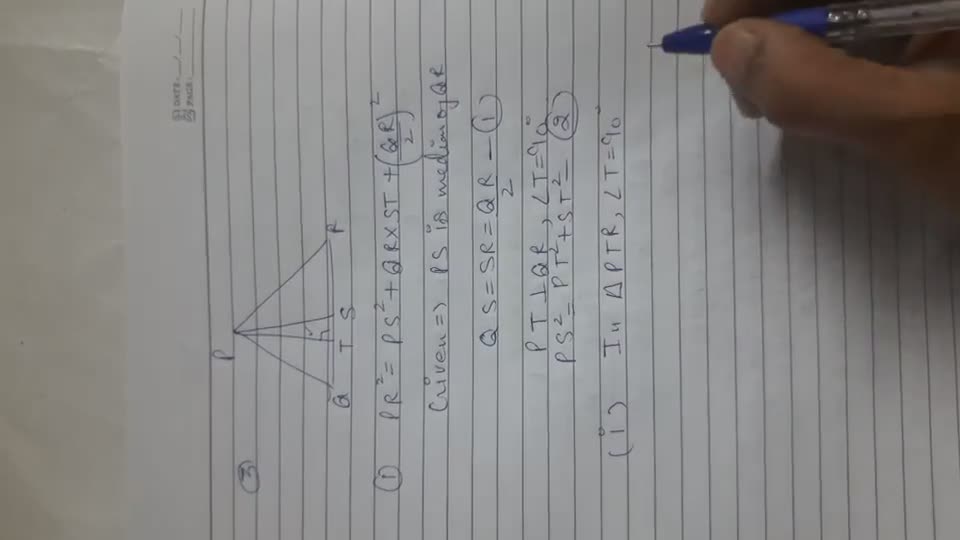 DATE: / /
PAGE:
③
P
Q T S R
① PR² = PS² + QR × ST + (QR/2)²
Given => PS is median of QR
QS = SR = QR/2 - ①
PT ⊥ QR, ∠T = 90°
PS² = PT² + ST² - ②
(i) In ΔPTR, ∠T = 90°